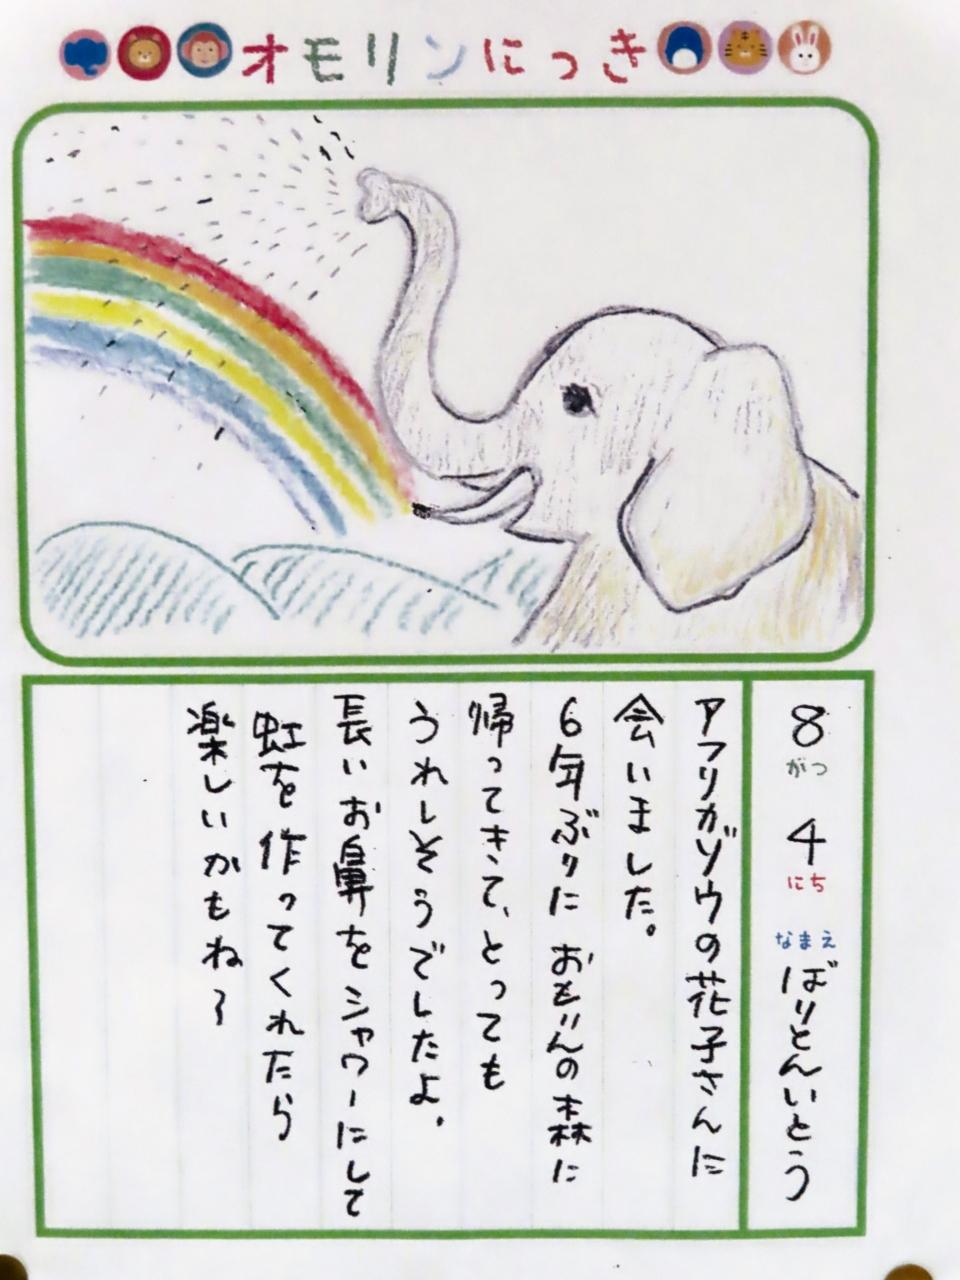 オモリンにっき
8
がつ
4
にち
なまえ
ばりとんいとう
アフリカゾウの花子さんに
会いました。
6年ぶりに おもりんの森に
帰ってきて、とっても
うれしそうでしたよ。
長いお鼻をシャワーにして
虹を作ってくれたら
楽しいかもね〜